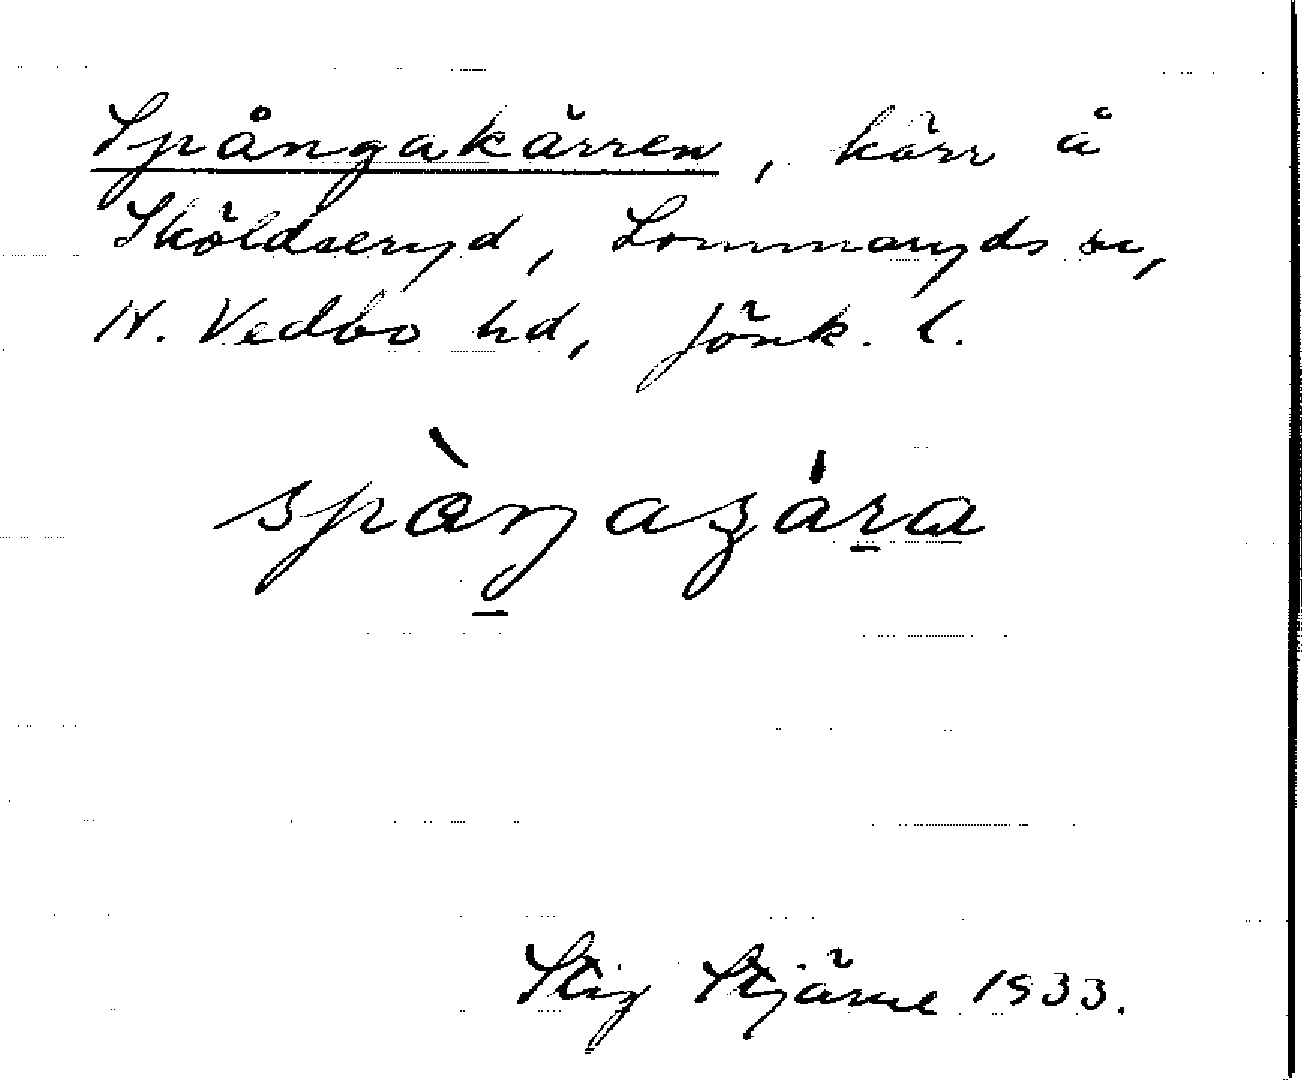 Spångakärren, kärr å
Sköldseryd, Lommaryds sn,
N. Vedbo hd, Jönk. l.
spàŋaʒára
Stig Stjärne 1933.